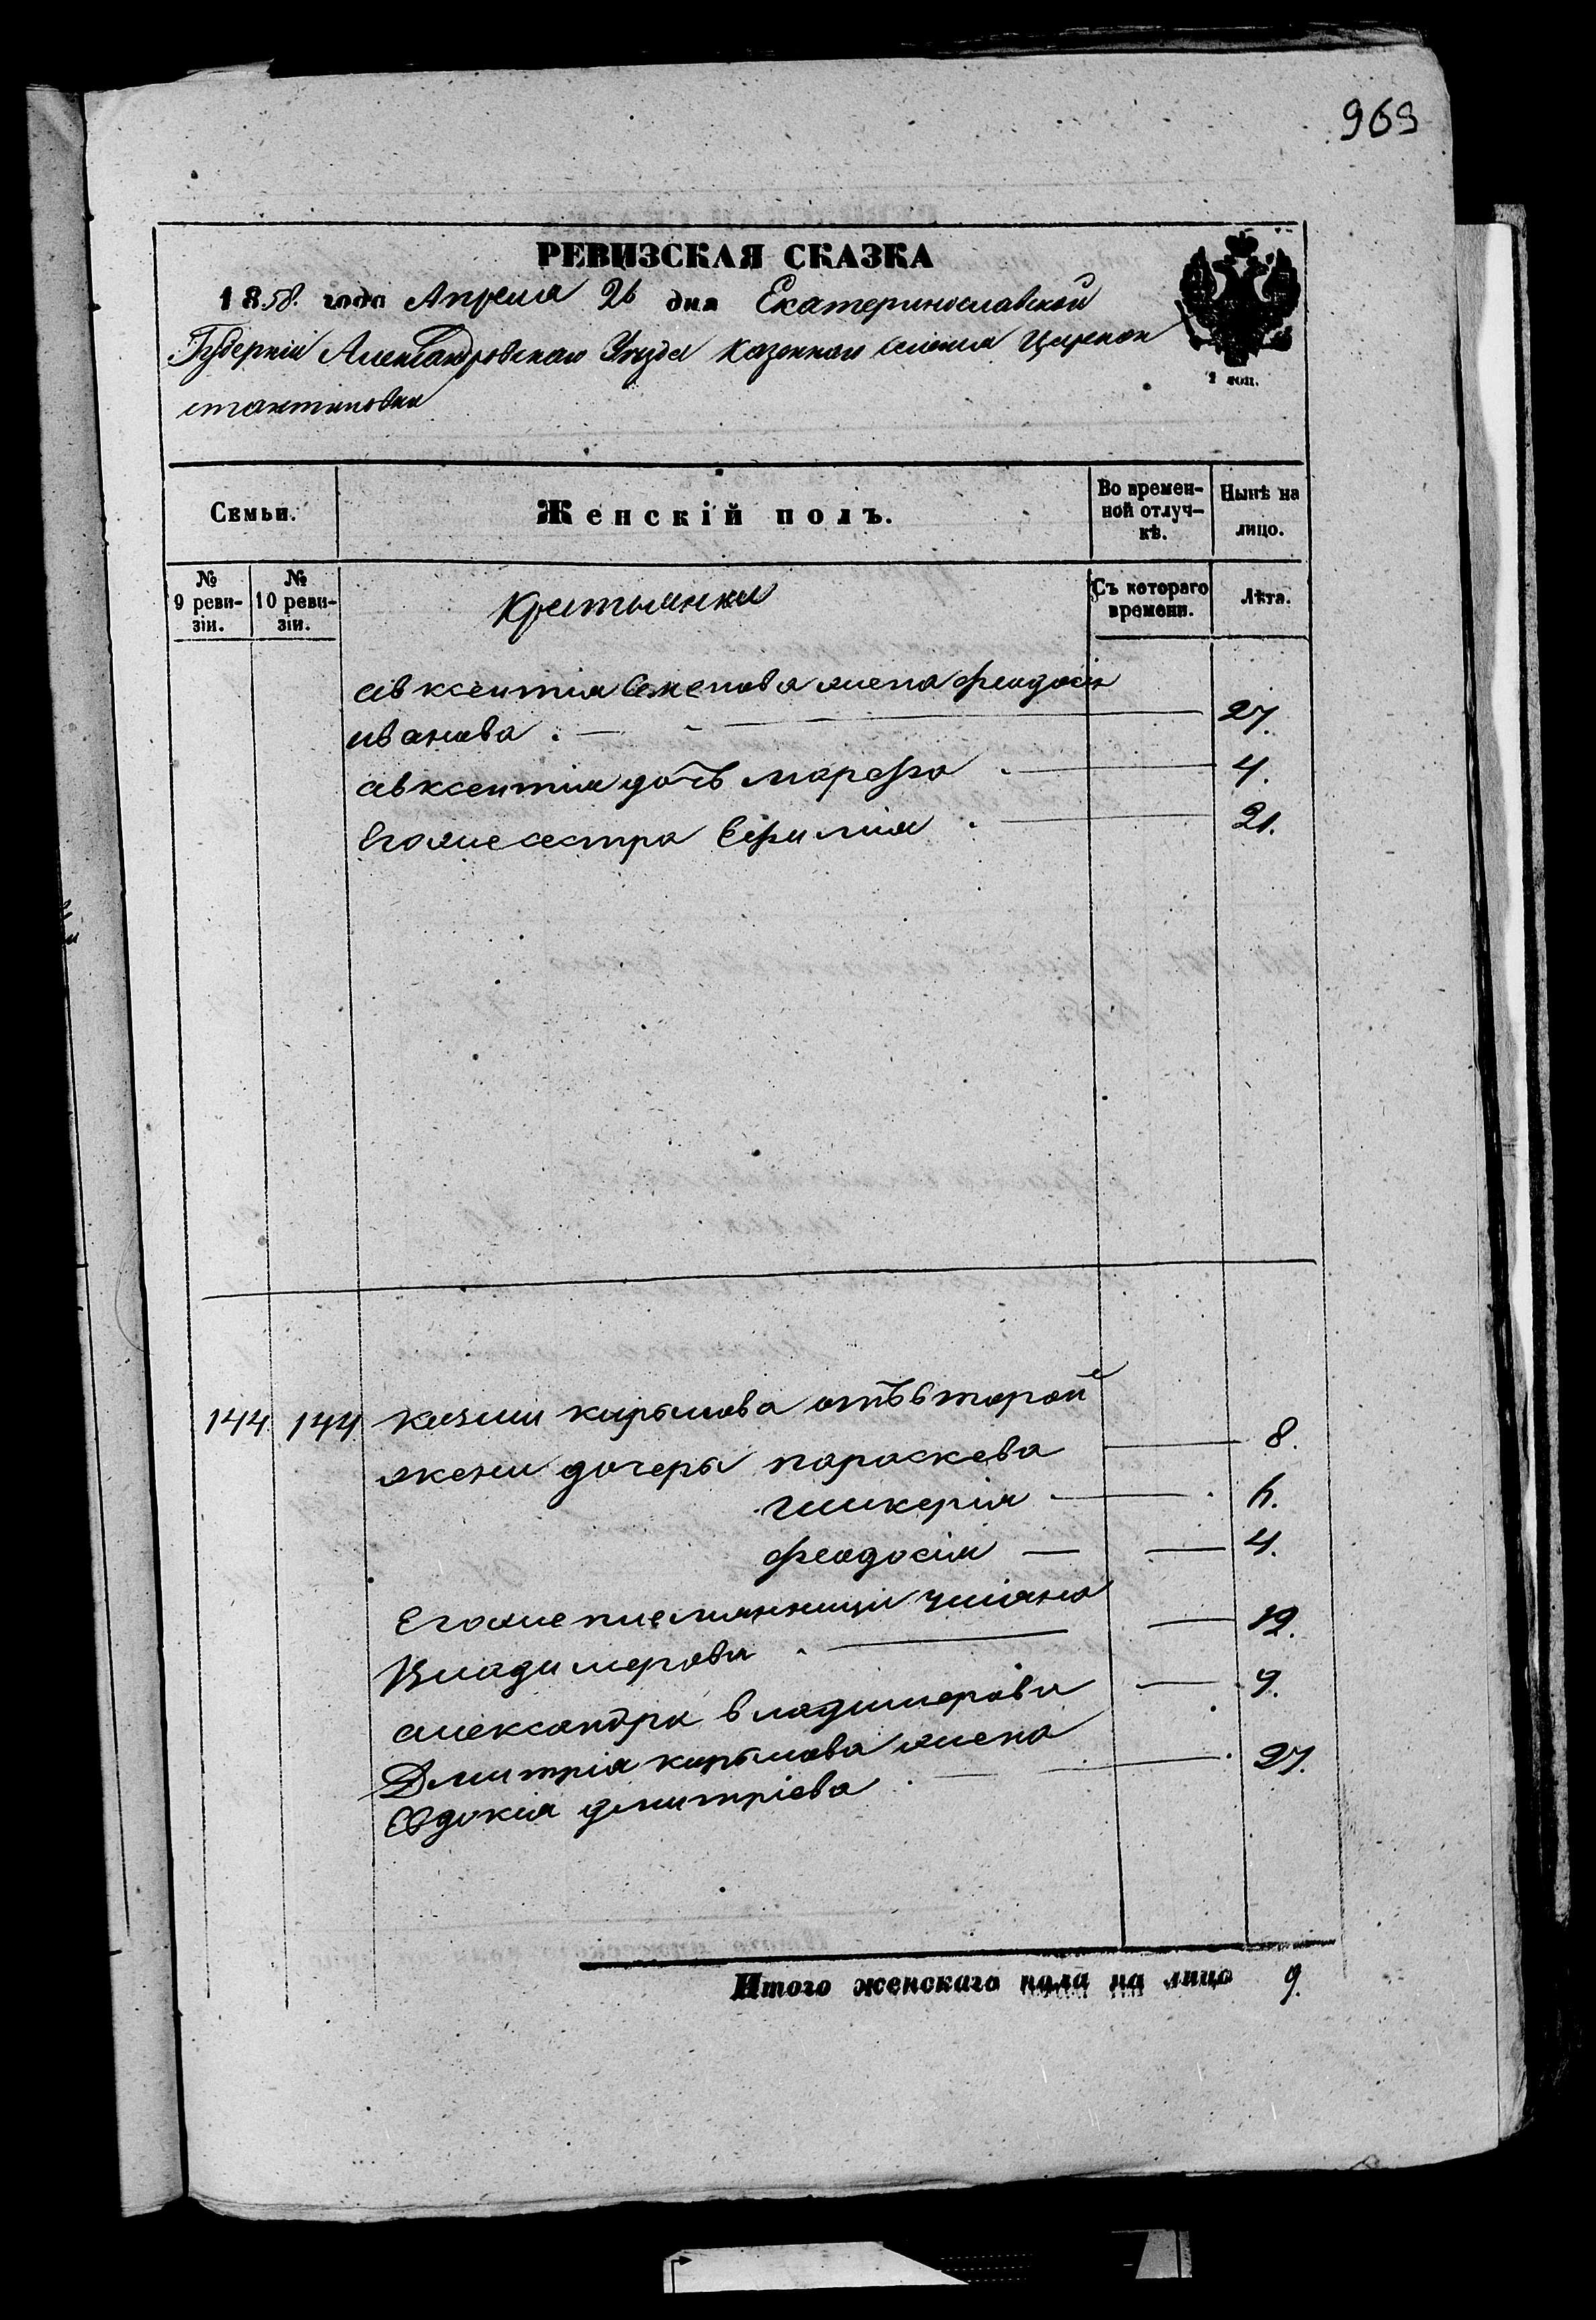 969
РЕВИЗСКАЯ СКАЗКА
1858. года Апреля 26 дня Екатеринославской
Губерніи Александровскаго Уезда казеннаго селенія Царекон
стантиновки
1 коп.
Семьи.
Женскій полъ.
Во времен-
ной отлуч-
кѣ.
Нынѣ на
лицо.
№
9 реви-
зіи.
№
10 реви-
зіи.
Крестьянки
Съ котораго
времени.
Лѣта.
авксентія Семенова жена феодосія
иванова . — 27.
авксентія дочь марфа . — 4.
Егоже сестра Ефимія . — 21.
144 144 казми кирылова отъ второй
жени дочеры параскева — 8.
гликерія — 6.
феодосія — 4.
Егоже племянницы уліяна
Владимерова . — 12.
александра владимерова — 9.
Дмитрія кирылова жена
Евдокія дмитріева . — 27.
Итого женскаго пола на лицо 9.